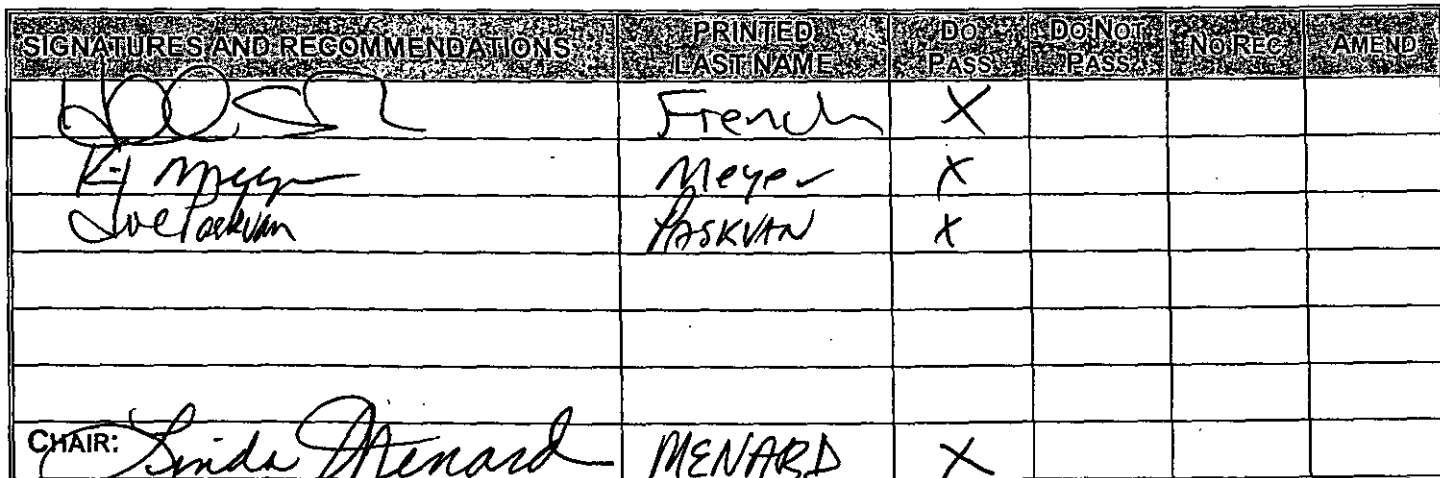 SIGNATURES AND RECOMMENDATIONS PRINTED LAST NAME DO PASS DO NOT PASS NO REC AMEND
French X
Meyer Meyer X
Joe Paskvan PASKVAN X
CHAIR: Linda Menard MENARD X